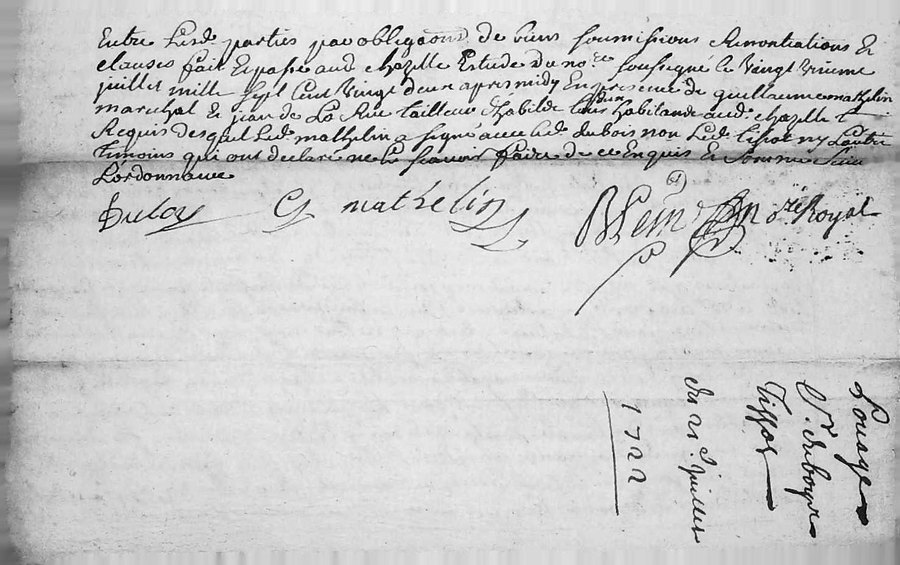 Entre Lesd. parties par obligaōns de biens soumissions Renontiations Et
clauses fait Et passé aud chazelle Estude du no.re soussigné le Vingt Uniéme
juillet mille sept Cent Vingt deux apres midy En presence de guillaume mathelin
marechal Et jean de La Rue tailleur d'habits tous habitants aud. chazelle t.
Requis desquel Led. mathelin a signé avec led. dubois non Led. tissot ny Lautre
temoins qui ont declaré ne le scavoir faire de ce Enquis Et Sommé Suiv
Lordonnance
Duboy G mathelin no.re Royal
Louage
Sr. duboys
Tissot
du 21e. juillet
1722